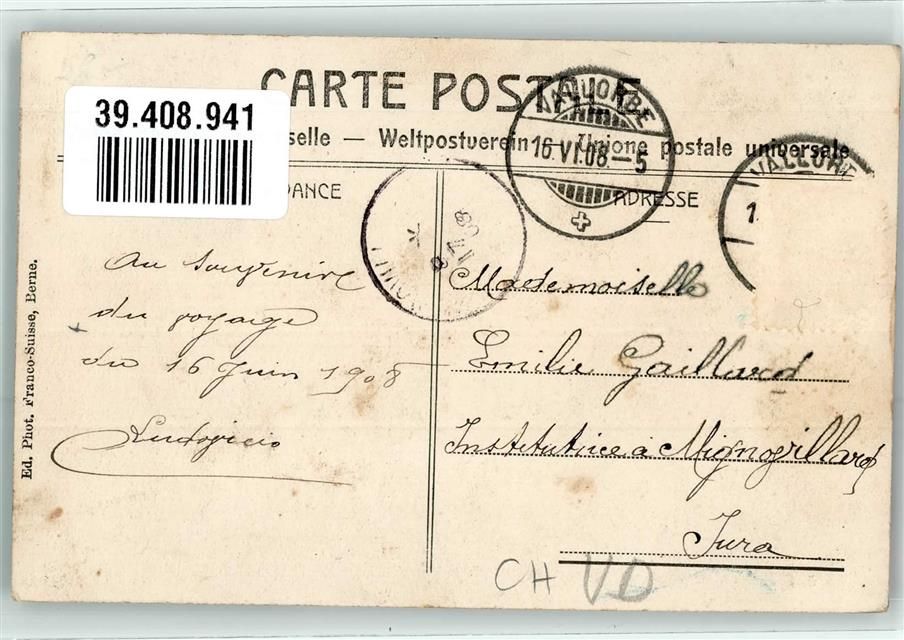 CARTE POSTALE
39.408.941
selle — Weltpostverein — Unione postale universale
DANCE
ADRESSE
VALLORBE
16.VI.08–5
VALLORB
1
Au souvenire
du voyage
du 16 Juin 1908
Mademoiselle
Emilie Gaillard
Institutrice à Mignovillard
Jura
Ed. Phot. Franco-Suisse, Berne.
CH VD